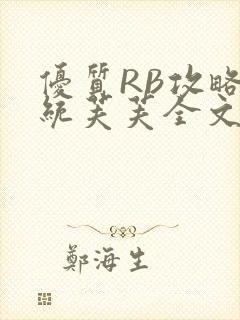 優質RB攻略
統芙芙全文
鄭海生